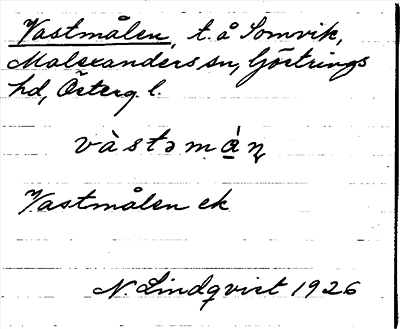 Vastmålen, t. å Somvik,
Malexanders sn, Göstrings
hd, Österg. l.
vàstəmá̱ɳ
Vastmålen ek
N Lindqvist 1926